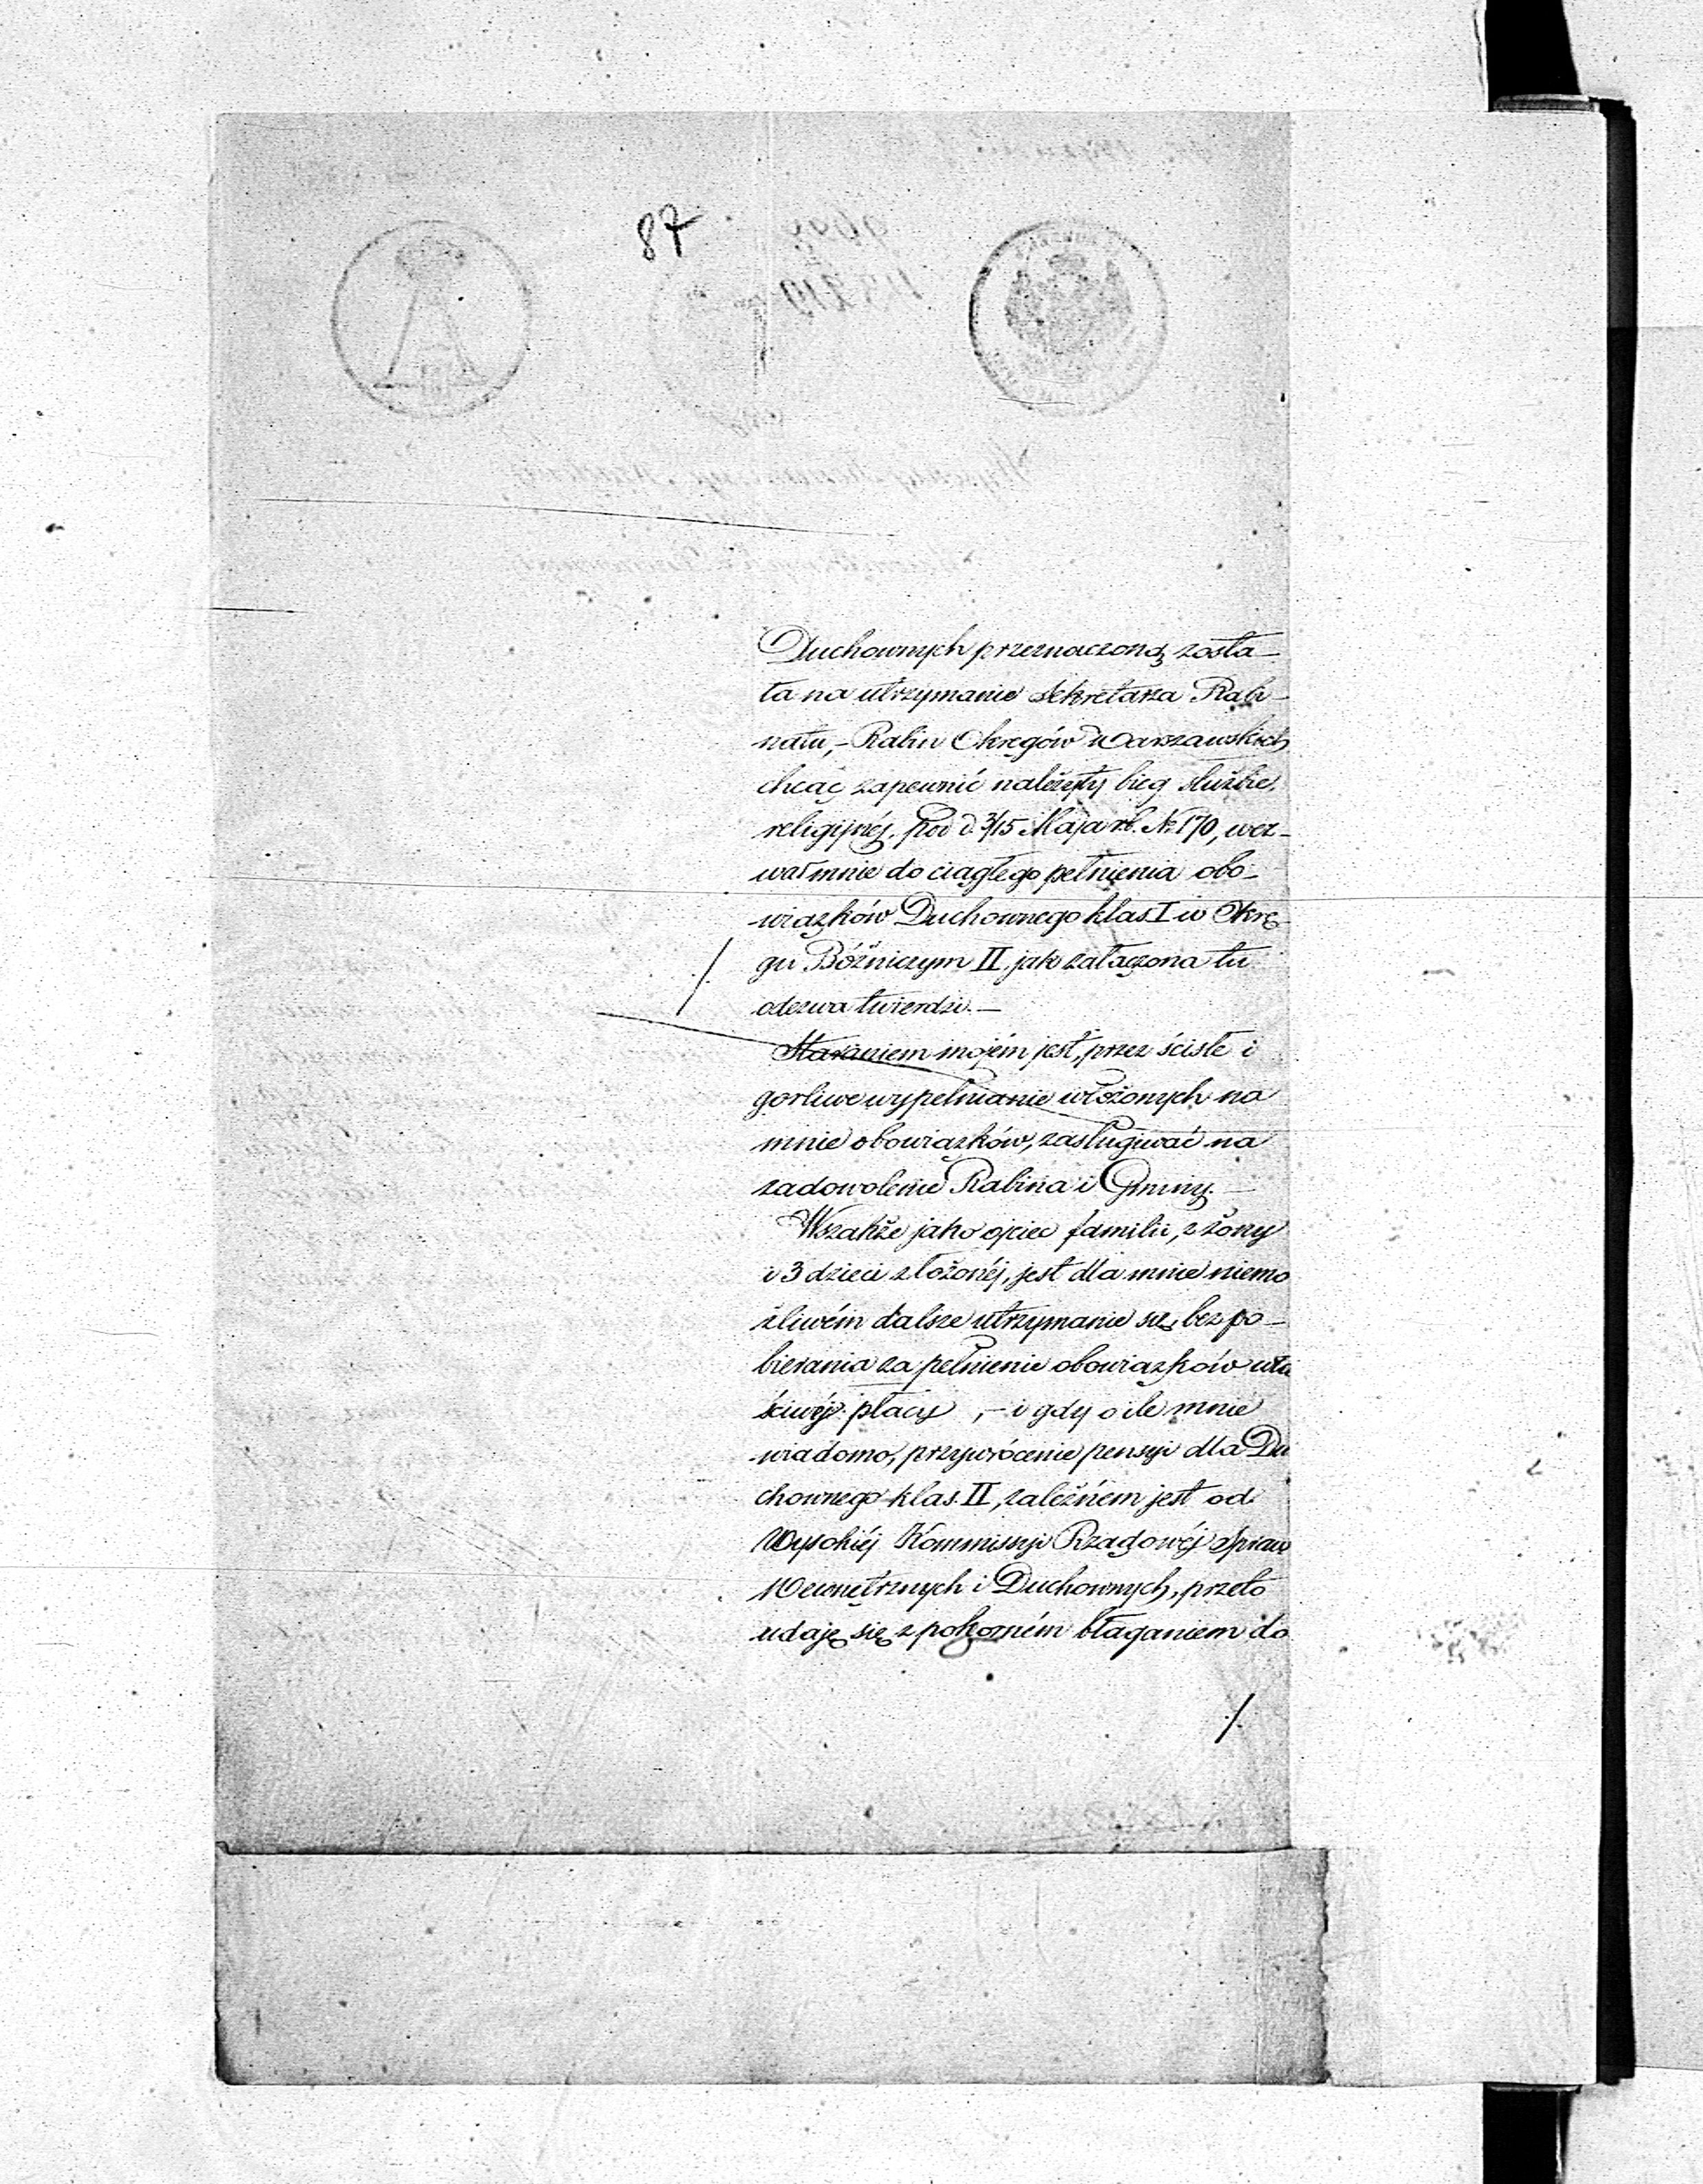 87
Duchownych przeznaczoną zosta-
ła na utrzymanie Sekretarza Rabi-
natu,- Rabin Okręgów Warszawskich
chcąc zapewnić należyty bieg służbie
religijnéj, pod d. 3/15 Maja r.b. № 170, wez-
wał mnie do ciągłego pełnienia obo-
wiązków Duchownego klas. I w Okrę
gu Bóżniczym II, jak załączona tu
odezwa twierdzi.-
Staraniem mojém jest, przez ścisłe i
gorliwe wypełnianie włożonych na
mnie obowiązków, zasługiwać na
zadowolenie Rabina i Gminy.-
Wszakże jako ojciec familii, z żony
i 3 dzieci złożonéj, jest dla mnie niemo
żliwém dalsze utrzymanie się bez po-
bierania za pełnienie obowiązków wła
ściwéj płacy,- i gdy o ile mnie
wiadomo, przywrócenie pensyi dla Du
chownego klas. II, zależném jest od
Wysokiéj Kommissyi Rządowéj Spraw
Wewnętrznych i Duchownych, przeto
udaję się z pokorném błaganiem do
./.